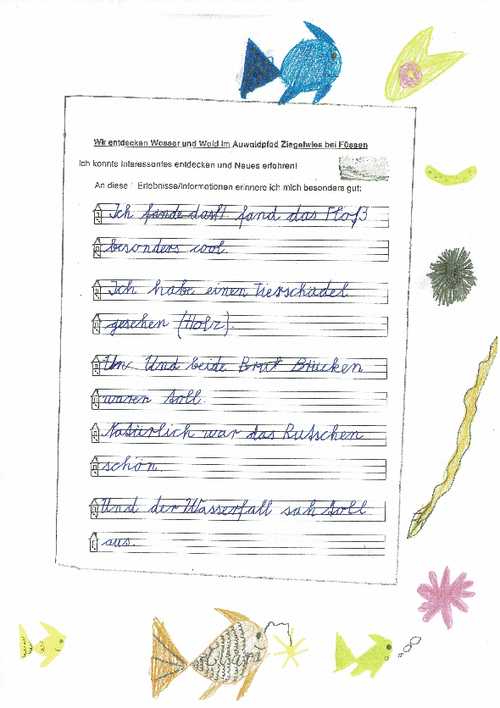 Wir entdecken Wasser und Wald im Auwaldpfad Ziegelwies bei Füssen
Ich konnte Interessantes entdecken und Neues erfahren!
An diese Erlebnisse/Informationen erinnere ich mich besonders gut:
Ich fande das!! fand das Floß
besonders cool.
Ich habe einen Tierschädel
gesehen (Holz).
Und beide Brücken
waren toll.
Natürlich war das Rutschen
schön.
Und der Wasserfall sah toll
aus.